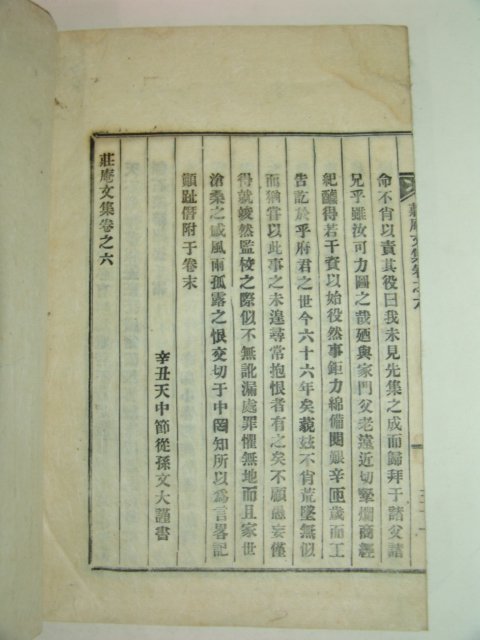 莊庵文集卷之六
命不肖以責其役曰我未見先集之成而歸拜于諸父諸
兄乎雖汝可力圖之哉廼與家門父老遠近切掣爛商經
紀醵得若干資以始役然事鉅力綿備閱艱辛匝歲而工
告訖於乎府君之世今六十六年矣藐玆不肖荒墜無似
而猶嘗以此事之未遑尋常抱恨者有之矣不顧愚妄僅
得就竣然監校之際似不無訛漏處罪懼無地而且家世
滄桑之感風雨孤露之恨交切于中罔知所以爲言畧記
顚趾僭附于卷末
辛丑天中節從孫文大謹書
莊庵文集卷之六